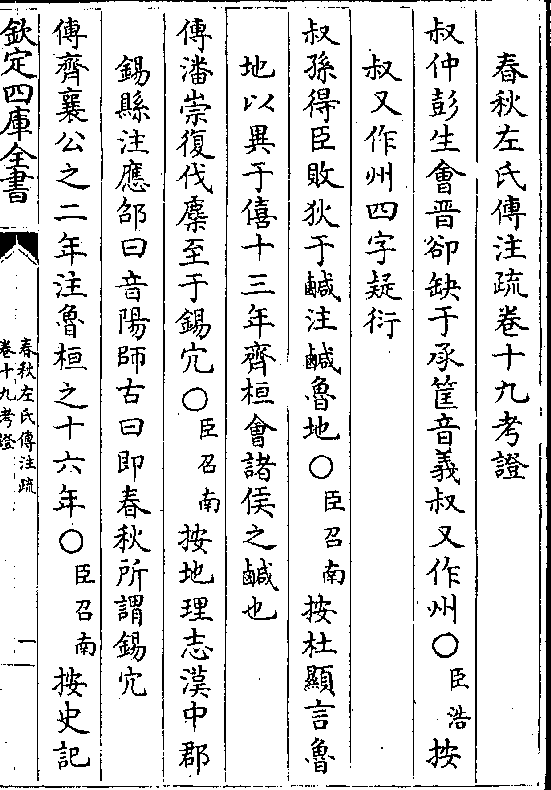 春秋左氏傳注疏卷十九考證
叔仲彭生會晉卻缺于承筐音義叔又作州〇臣浩按
叔又作州四字疑衍
叔孫得臣敗狄于鹹注鹹魯地〇臣召南按杜顯言魯
地以異于僖十三年齊桓會諸侯之鹹也
傳潘崇復伐麇至于錫穴〇臣召南按地理志漢中郡
錫縣注應邵曰音陽師古曰即春秋所謂錫穴
傳齊襄公之二年注魯桓之十六年〇臣召南按史記
欽定四庫全書
春秋左氏傳注疏
卷十九考證
一